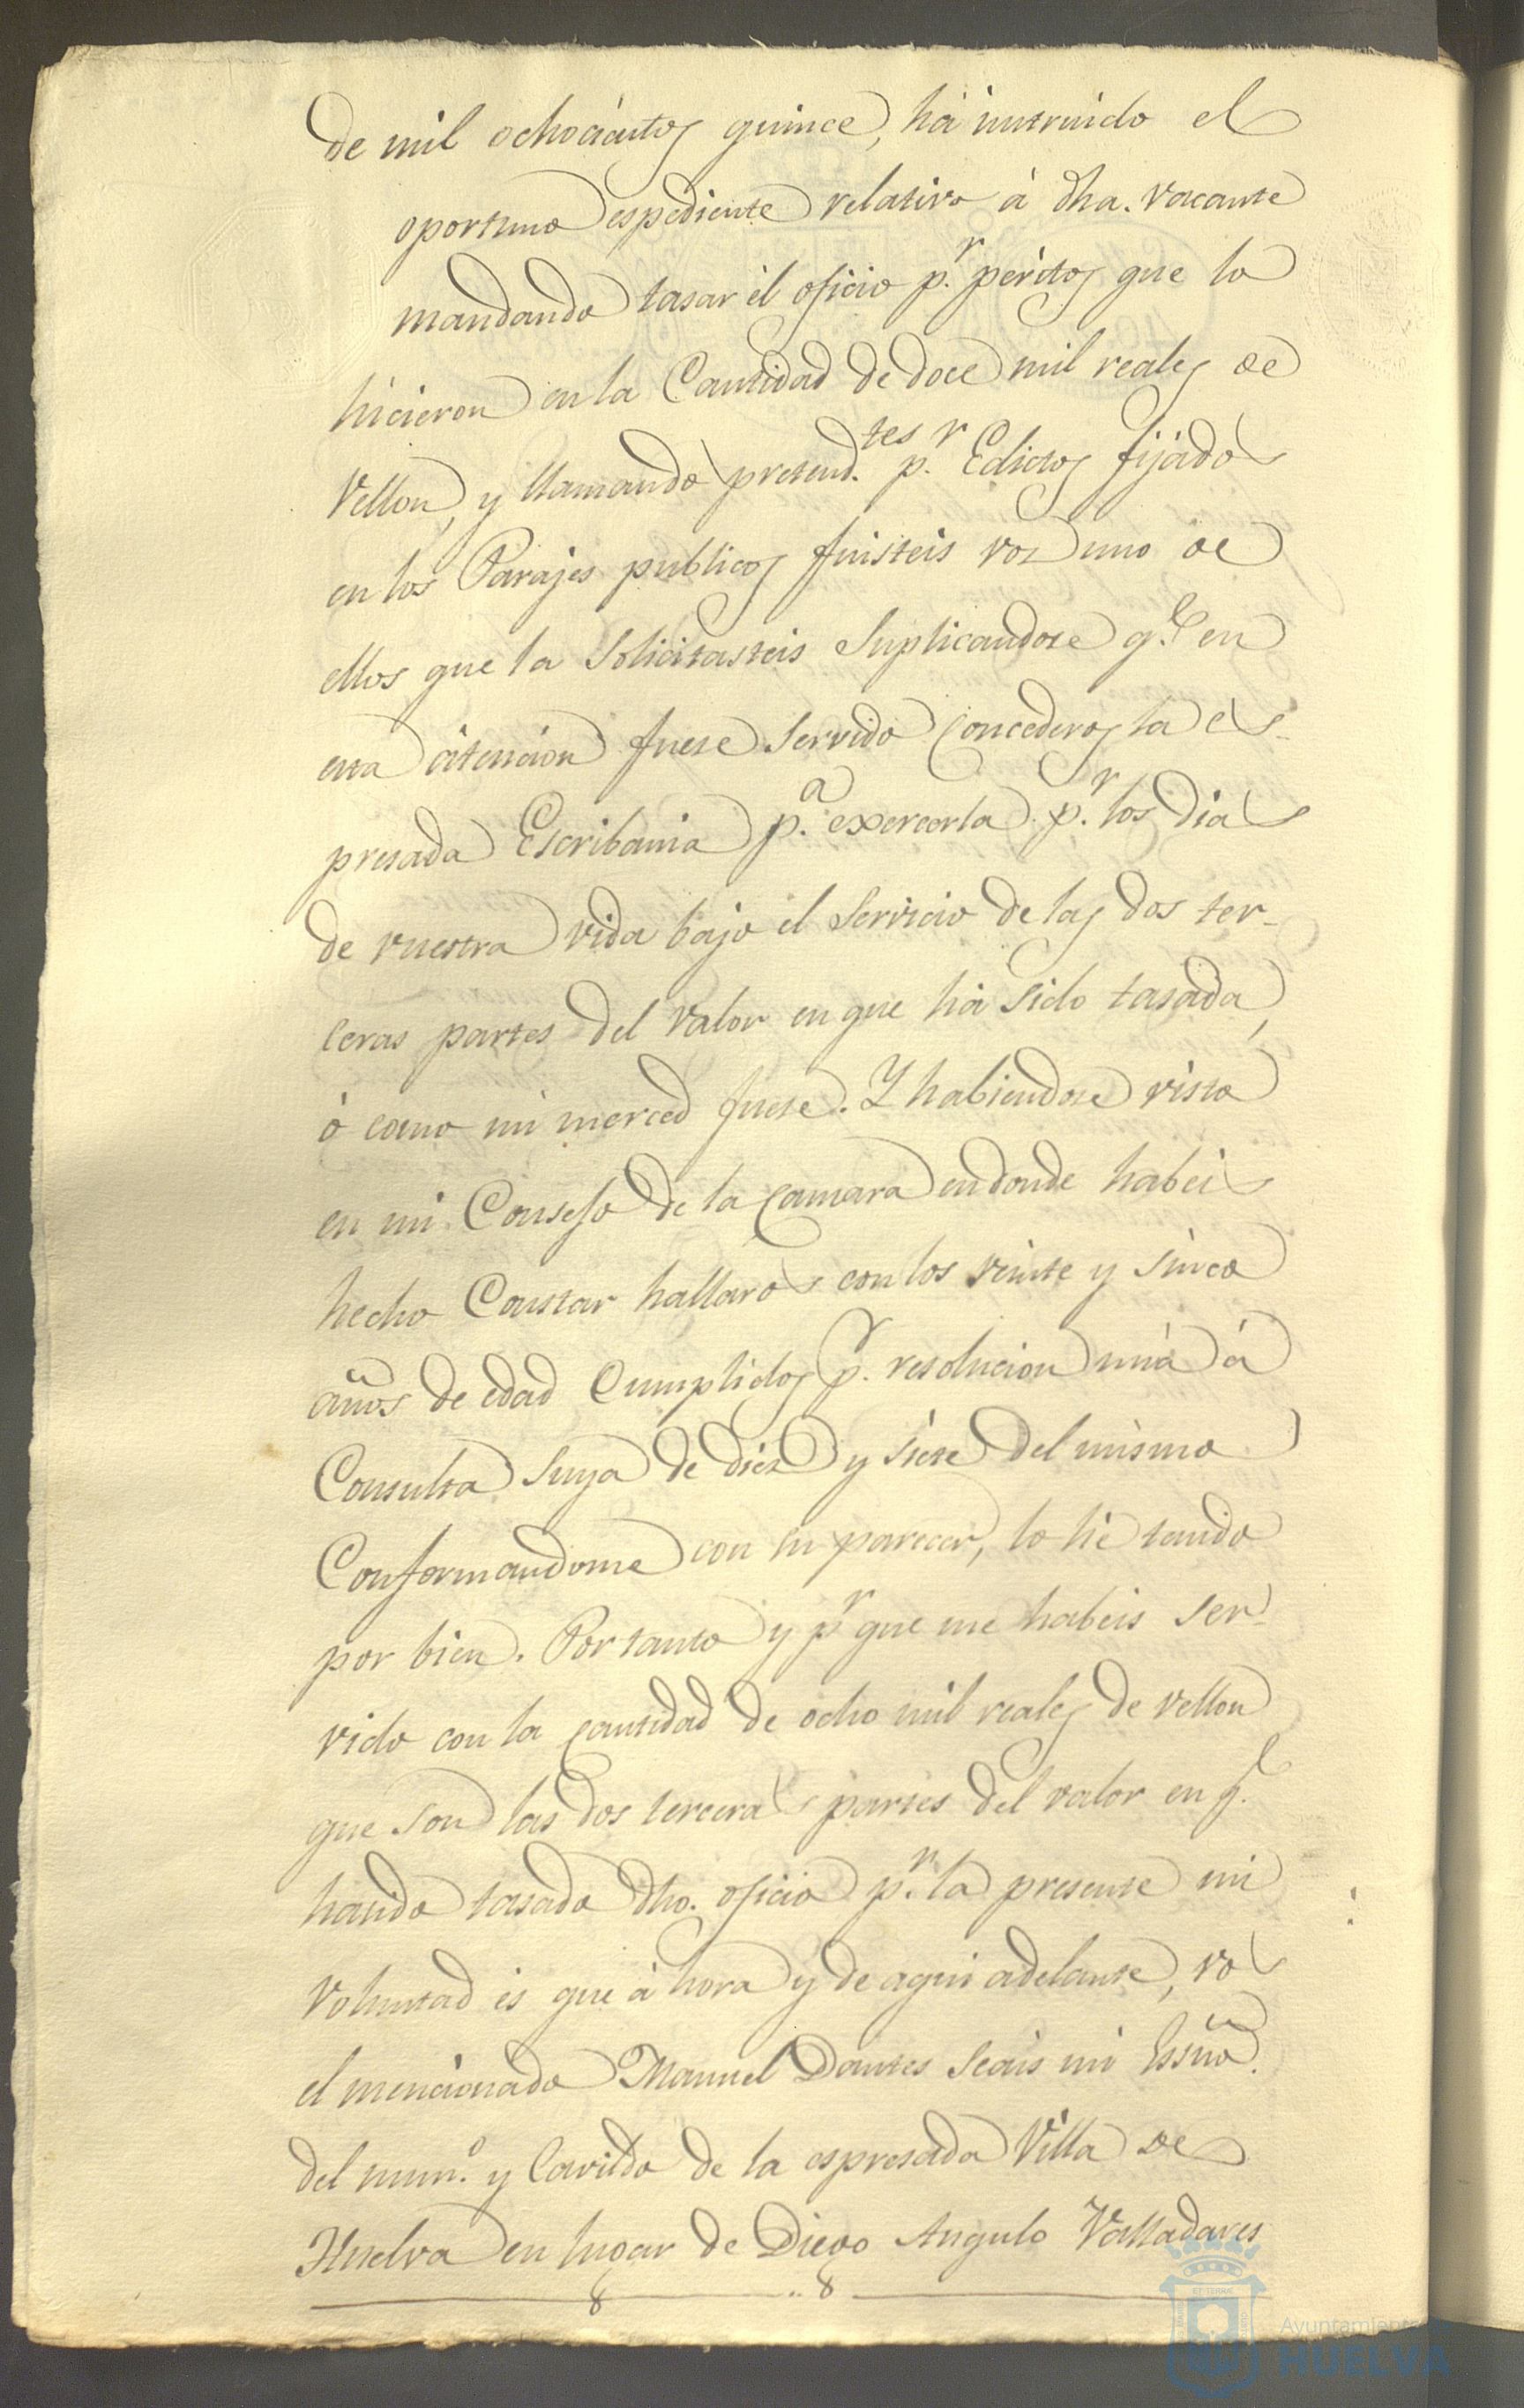 de mil ochocientos quince, há instruido el
oportuno espediente relativo á dha. vacante
mandando tasar él oficio p.r peritos que lo
hicieron en la Cantidad de doce mil reales de
Vellon, y llamando pretend.tes p.r Edictos fijados
en los Parajes publicos fuisteis vos uno de
ellos que la Solicitasteis Suplicandose q.e en
esta átencion fuese Servido Concederos la es-
presada Escribania p.a exercerla p.r los dias
de vuestra vida bajo el Servicio de las dos ter-
ceras partes del valor en que há sido tasada,
ó como mi merced fuese. Y habiendose visto
en mi Consejo de la Camara en donde habeis
hecho Constar hallaros con los veinte y Sinco
años de edad Cumplidos p.r resolucion mia á
Consulta Suya de diez y Siete del mismo
Conformandome con su parecer, lo hé tenido
por bien. Por tanto y p.r que me habeis Ser-
vido con la Cantidad de ocho mil reales de vellon
que son las dos terceras partes del valor en q.e
hasido tasado dho. oficio p.r la presente mi
Voluntad es que á hora y de aqui adelante, vos
el mencionado Manuel Dantes Seais mi Essño.
del num.o y Cavildo de la espresada Villa de
Huelva en lugar de Diego Angulo Valladares
Ayuntamiento de
HUELVA